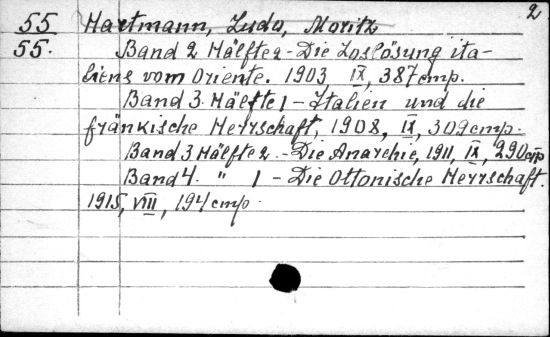 2
55 Hartmann, Ludo, Moritz
55. Band 2 Hälfte 2 - Die Loslösung ita-
liens vom Oriente. 1903 IX, 387 cmp.
Band 3 Hälfte 1 - Italien und die
fränkische Herrschaft, 1908, IX, 309 cmp.
Band 3 Hälfte 2 - Die Anarchie, 1911, IX, 290 cmp
Band 4. " 1 - Die Ottonische Herrschaft.
1915, VIII, 194 cmp.